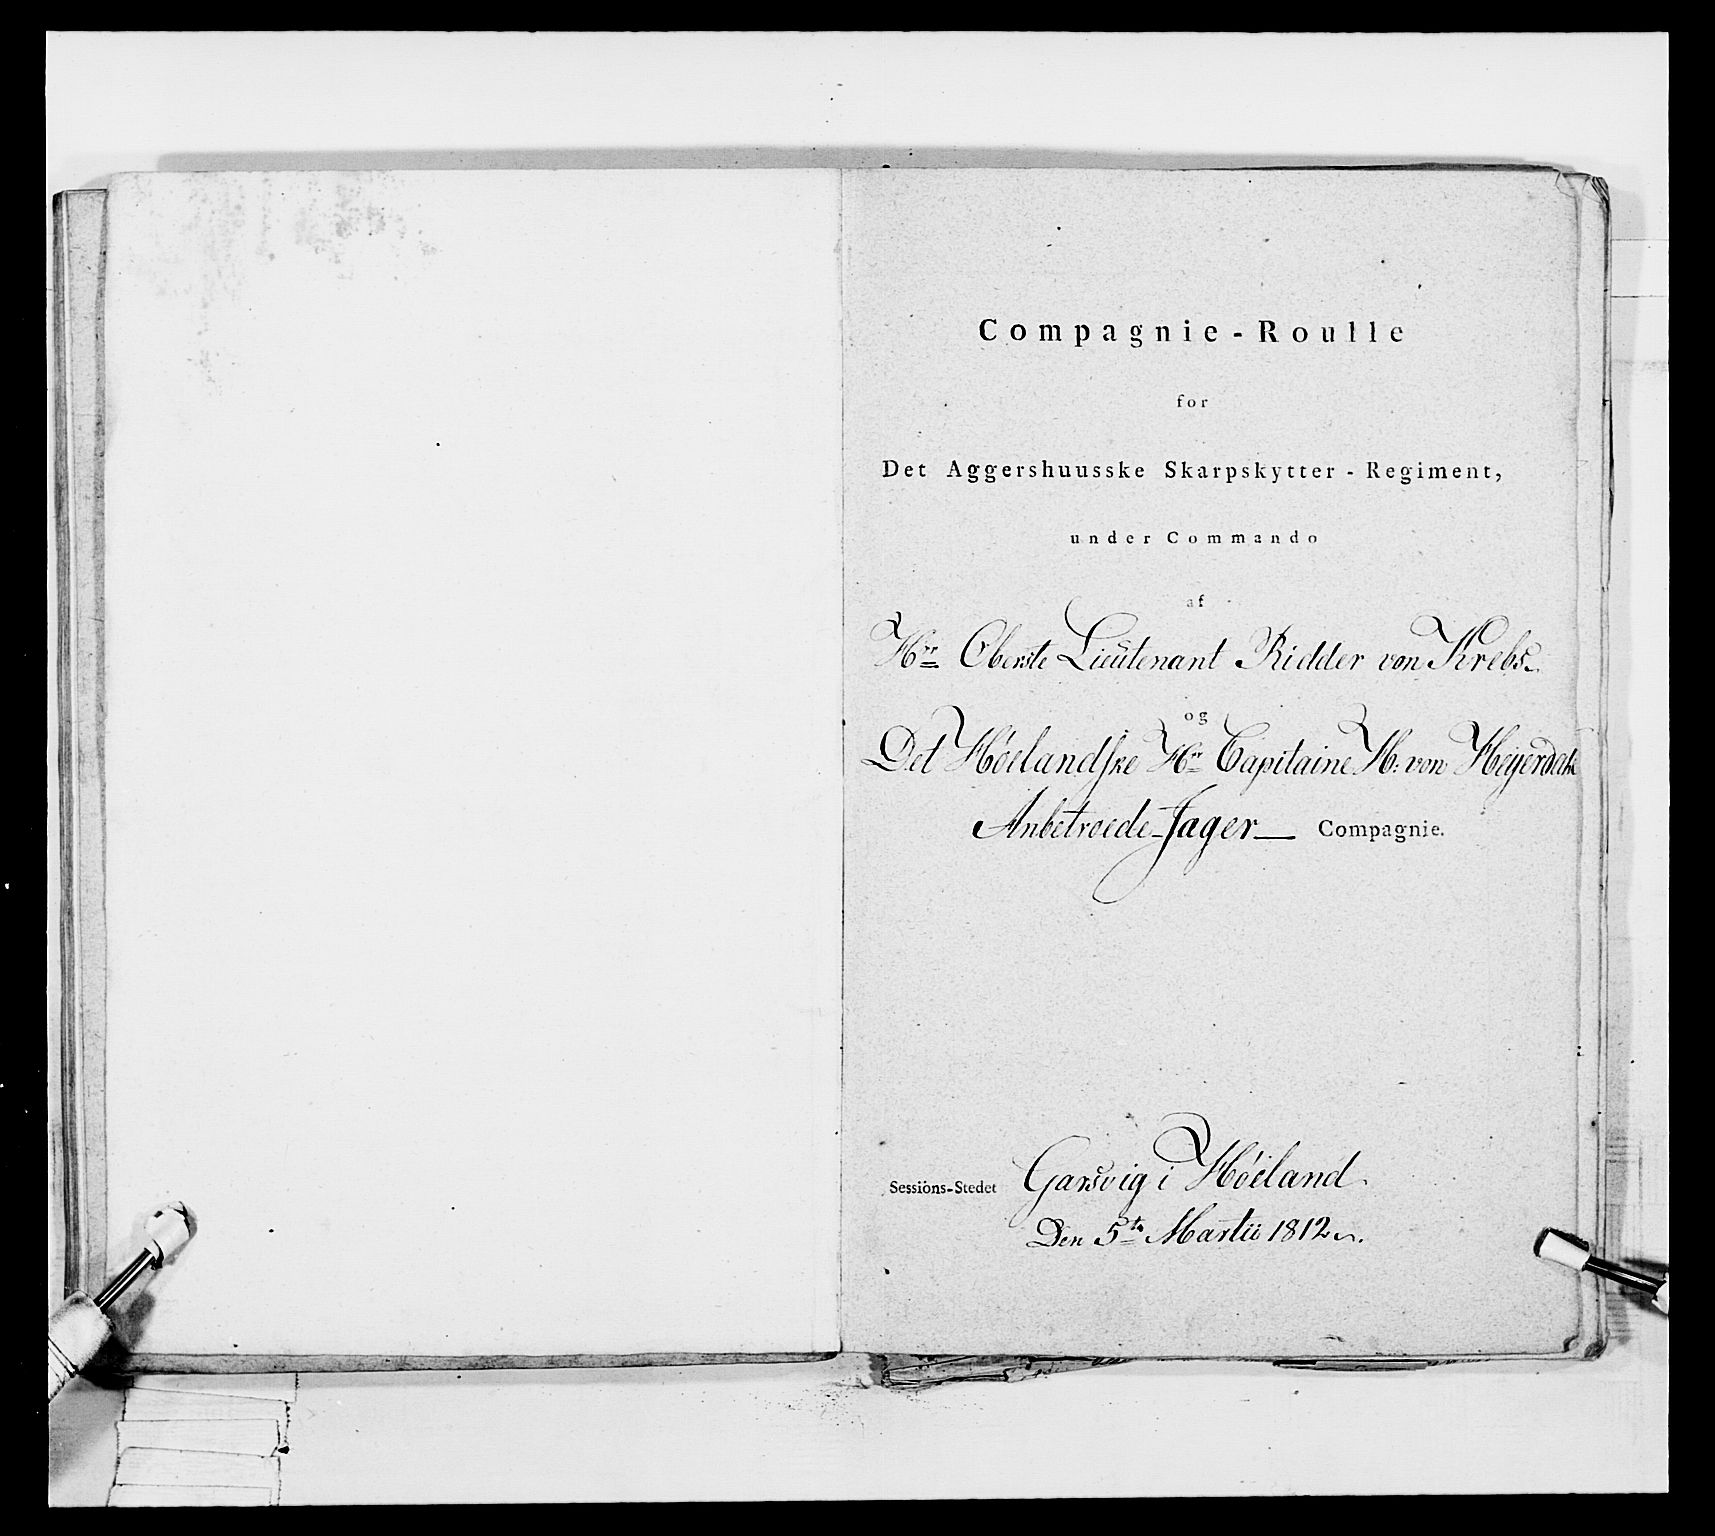 Compagnie-Roulle
for
Det Aggershuusske Skarpskytter-Regiment,
under Commando
af
Hrr Oberste Lieutenant Ridder von Krebs.
og
Det Høelandske Hrr Capitaine H: von Heyerdahl
Anbetroede Jager Compagnie.
Sessions-Stedet Garsvig i Høeland.
Den 5te Martii 1812.